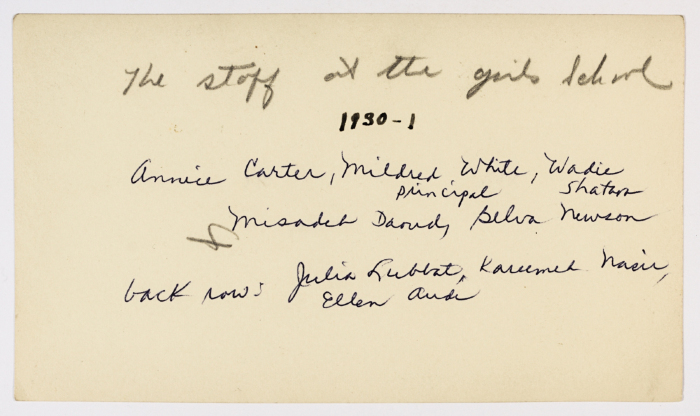 The staff at the girls School
1930-1
Annice Carter, Mildred White, Wadie
principal Shatara
Misadeh Daoud, Selva Newson
back row: Julia Kareemeh Nasir,
Ellen Audi